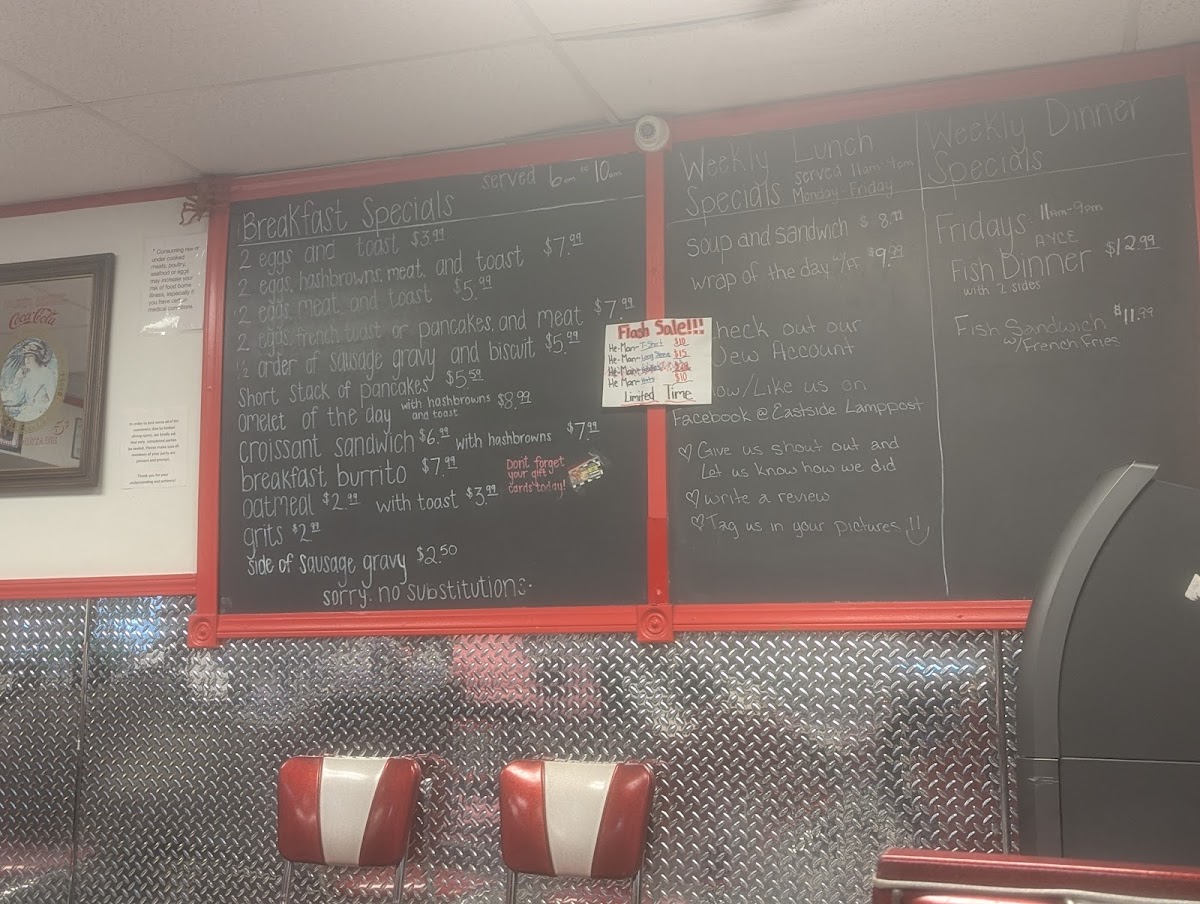 served 6am to 10am
Breakfast Specials
2 eggs and toast $3.99
2 eggs, hashbrowns, meat, and toast $7.99
2 eggs, meat, and toast $5.99
2 eggs, french toast or pancakes, and meat $7.99
1/2 order of sausage gravy and biscuit $5.99
short stack of pancakes $5.59
omelet of the day with hashbrowns and toast $8.99
croissant sandwich $6.99 with hashbrowns $7.99
breakfast burrito $7.99
oatmeal $2.99 with toast $3.99
grits $2.99
side of sausage gravy $2.50
sorry. no substitutions.
Don't forget
your gift
cards today!
Flash Sale!!!
He-Man-T-Shirt $10
He-Man-Long Sleeve $15
He-Man
He Man-Hats $10
Limited Time
Weekly Lunch
Specials served 11am-4pm
Monday-Friday
soup and sandwich $8.99
wrap of the day w/FF $9.99
heck out our
New Account
ow/Like us on
Facebook @ Eastside Lamppost
♡ Give us shout out and
Let us know how we did
♡ write a review
♡ Tag us in your pictures!!
Weekly Dinner
Specials
Fridays: 11am-9pm
AYCE
Fish Dinner $12.99
with 2 sides
Fish Sandwich $11.99
w/French Fries
* Consuming raw or
under cooked
meats, poultry,
seafood or eggs
may increase your
risk of food borne
illness, especially if
you have certain
medical conditions.
Coca-Cola
5¢
Thank you for your
understanding and patience!